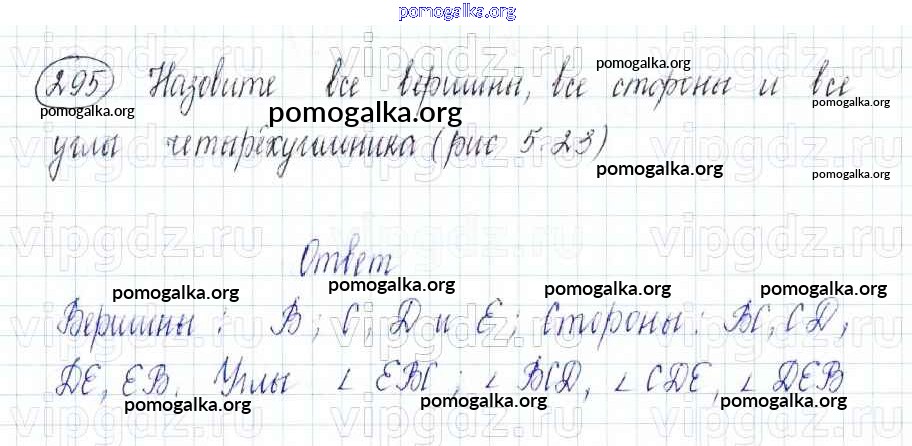 pomogalka.org
295 Назовите все вершины, все стороны и все
углы четырёхугольника (рис 5.23)
Ответ
Вершины: B; C, D и E; Стороны: BC, CD,
DE, EB. Углы ∠ EBC; ∠ BCD, ∠ CDE, ∠ DEB
pomogalka.org
pomogalka.org
pomogalka.org
pomogalka.org
pomogalka.org
pomogalka.org
pomogalka.org
pomogalka.org
pomogalka.org
pomogalka.org
pomogalka.org
pomogalka.org
pomogalka.org
pomogalka.org
vipgdz.ru
vipgdz.ru
vipgdz.ru